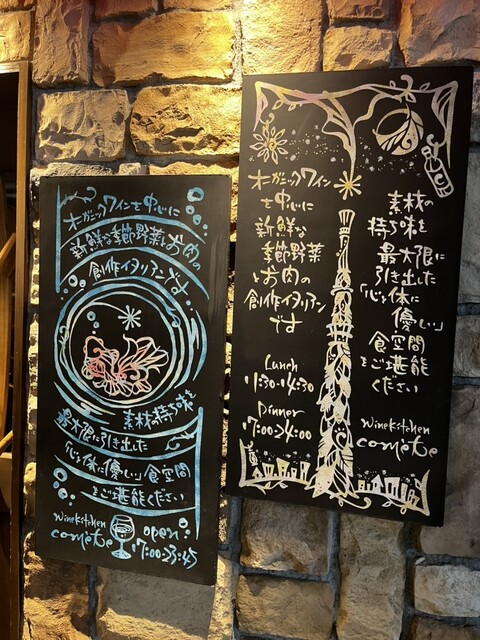 オーガニックワインを中心に
新鮮な季節野菜とお肉の
創作イタリアンです
素材の持ち味を
最大限に引き出した
「心と体に優しい」食空間
をご堪能ください
wine kitchen
comète
open
17:00-23:45
オーガニックワイン
を中心に
新鮮な
季節野菜
とお肉の
創作イタリアン
です
素材の
持ち味を
最大限に
引き出した
「心と体に
優しい」
食空間
をご堪能
ください
Lunch
11:30-14:30
Dinner
17:00-24:00
wine kitchen
comète